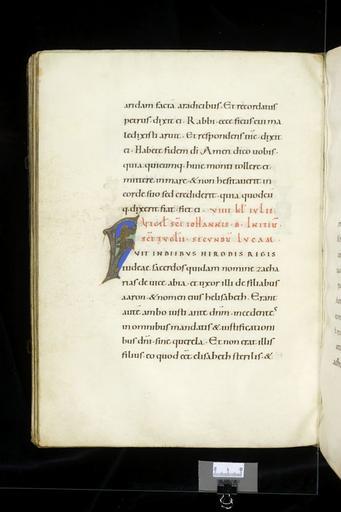 aridam factā aradicibus. Et recordatus
petrus. dixit ei. Rabbi. ecce ficus cui ma
ledixisti aruit. Et respondens ihc. dixit
ei. Habete fidem di. Amen dico uobis.
quia quicumq; huic monti tollere et
mittere in mare. & non hesitauerit in
corde suo sed crediderit. quia quodcū
q; dixerit fiat. fiet ei. VIIII. kl. IULII
IOHANNIS. B. INITIŪ
SCI EVGLII. SECUNDŪ LUCAM.
FUIT INDIEBUS HERODIS REGIS
iudeae. sacerdos quidam nomine zacha
rias de uice abia. et uxor illi de filiabus
aaron. & nomen eius helisabeth. Erant
autē ambo iusti ante dnm. incedentes
in omnibus mandatis & iustificationi
bus dni. sine querela. Et non erat illis
filius. eo quod eēt elisabeth sterilis. &